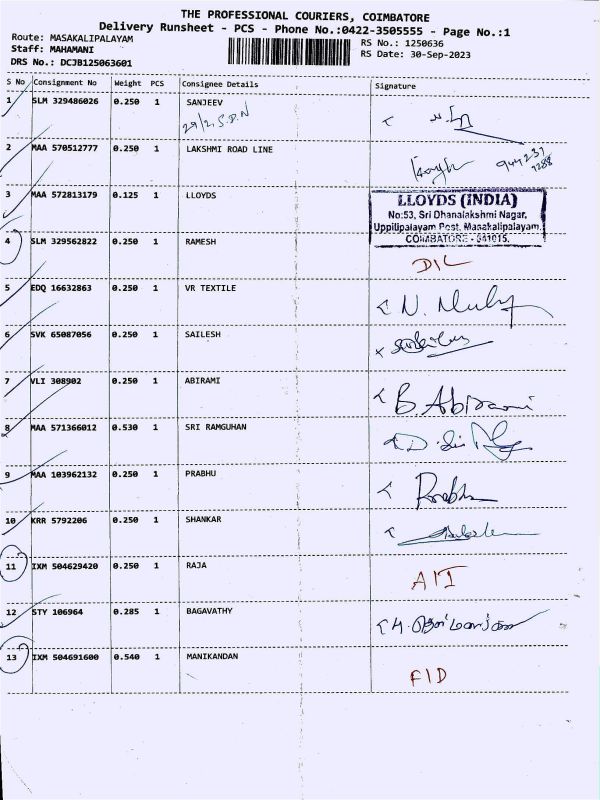 THE PROFESSIONAL COURIERS, COIMBATORE
Delivery Runsheet - PCS - Phone No.:0422-3505555 - Page No.:1
Route: MASAKALIPALAYAM
RS No.: 1250636
Staff: MAHAMANI
RS Date: 30-Sep-2023
DRS No.: DCJB125063601
S No Consignment No Weight PCS Consignee Details Signature
1 SLM 329486026 0.250 1 SANJEEV
29/2 S.D.N
2 MAA 570512777 0.250 1 LAKSHMI ROAD LINE
3 MAA 572813179 0.125 1 LLOYDS
LLOYDS (INDIA)
No:53, Sri Dhanalakshmi Nagar,
Uppilipalayam Post, Masakalipalayam,
COIMBATORE - 641015.
4 SLM 329562822 0.250 1 RAMESH
D/L
5 EDQ 16632863 0.250 1 VR TEXTILE
6 SVK 65087056 0.250 1 SAILESH
7 VLI 308902 0.250 1 ABIRAMI
B. Abirami
8 MAA 571366012 0.530 1 SRI RAMGUHAN
9 MAA 103962132 0.250 1 PRABHU
Prabhu
10 KRR 5792206 0.250 1 SHANKAR
11 IXM 504629420 0.250 1 RAJA
AIT
12 STY 106964 0.285 1 BAGAVATHY
13 IXM 504691600 0.540 1 MANIKANDAN
FID